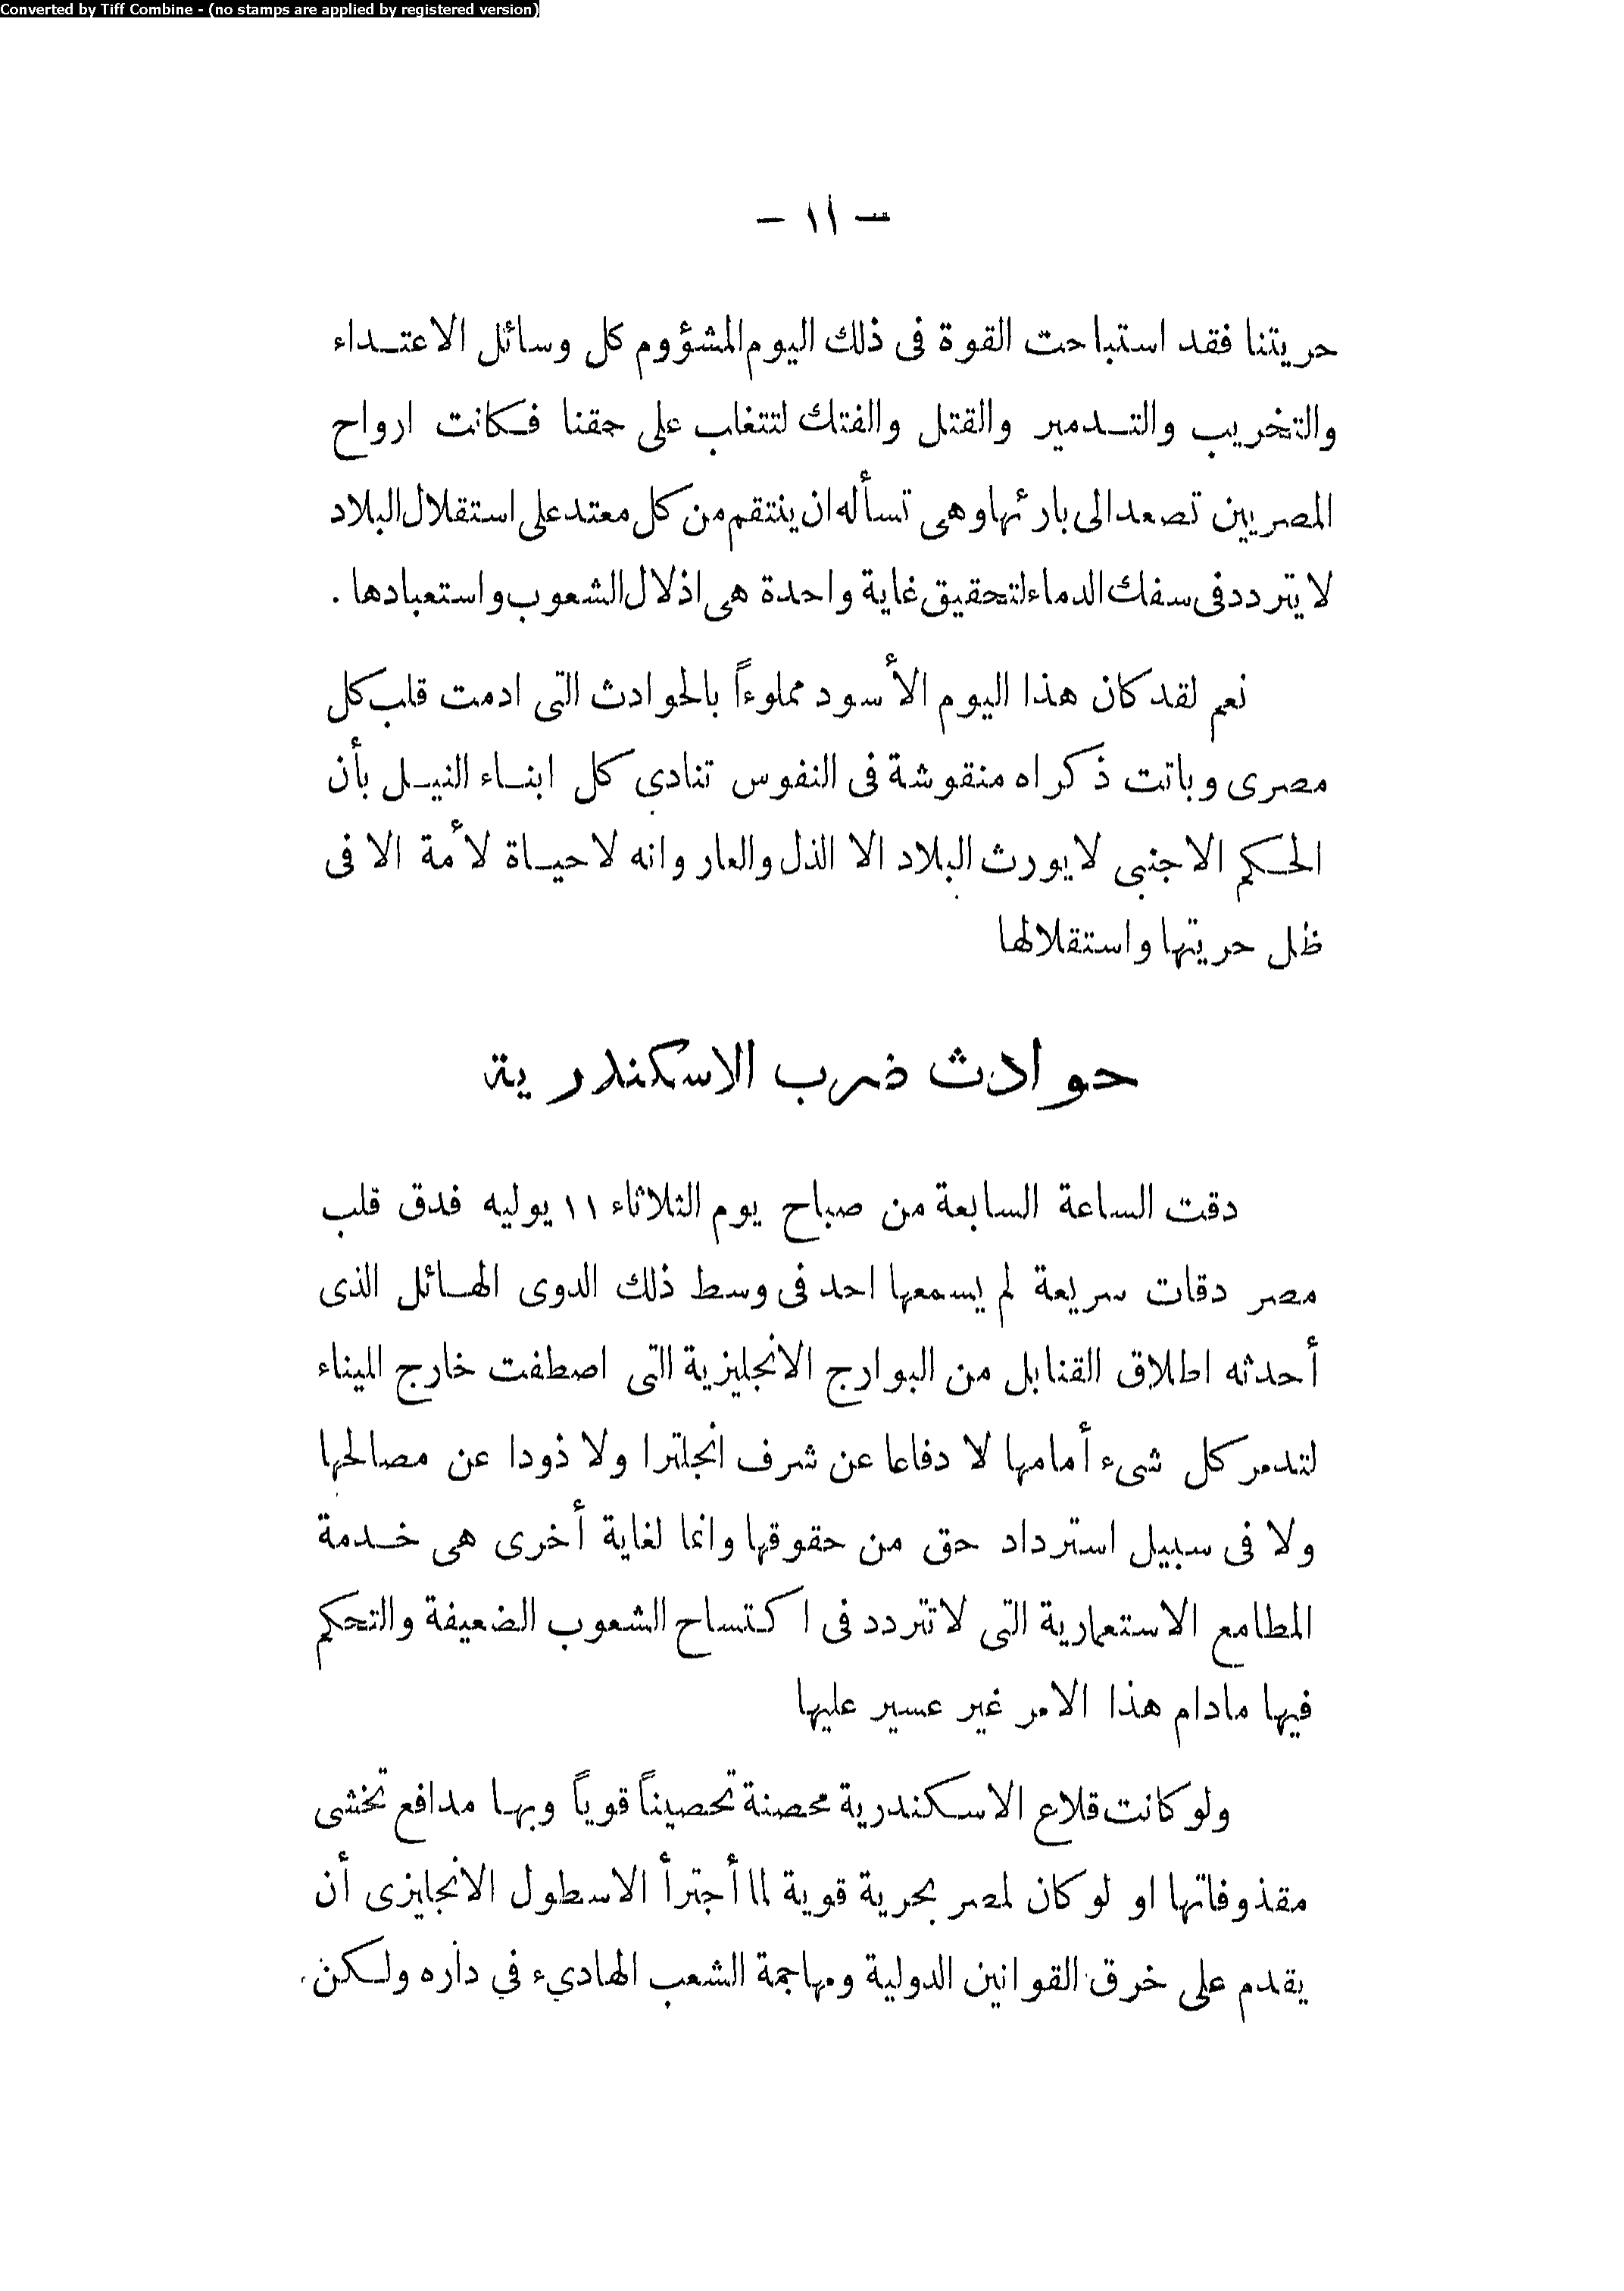 Converted by Tiff Combine - (no stamps are applied by registered version)
— ١١ —
حريتنا فقد استباحت القوة فى ذلك اليوم المشؤوم كل وسائل الاعتداء
والتخريب والتدمير والقتل والفتك لتتغلب على حقنا فكانت ارواح
المصريين تصعد الى بارئها وهى تسأله ان ينتقم من كل معتد على استقلال البلاد
لا يتردد فى سفك الدماء لتحقيق غاية واحدة هى اذلال الشعوب واستعبادها .
نعم لقد كان هذا اليوم الأسود مملوءاً بالحوادث التى ادمت قلب كل
مصرى وباتت ذكراه منقوشة فى النفوس تنادى كل ابناء النيل بأن
الحكم الاجنبى لا يورث البلاد الا الذل والعار وانه لا حياة لأمة الا فى
ظل حريتها واستقلالها
حوادث ضرب الاسكندرية
دقت الساعة السابعة من صباح يوم الثلاثاء ١١ يوليه فدق قلب
مصر دقات سريعة لم يسمعها احد فى وسط ذلك الدوى الهائل الذى
أحدثه اطلاق القنابل من البوارج الانجليزية التى اصطفت خارج الميناء
لتدمر كل شىء أمامها لا دفاعا عن شرف انجلترا ولا ذودا عن مصالحها
ولا فى سبيل استرداد حق من حقوقها وانما لغاية أخرى هى خدمة
المطامع الاستعمارية التى لا تتردد فى اكتساح الشعوب الضعيفة والتحكم
فيها مادام هذا الامر غير عسير عليها
ولو كانت قلاع الاسكندرية محصنة تحصيناً قوياً وبها مدافع تخشى
مقذوفاتها او لو كان لمصر بحرية قوية لما أجترأ الاسطول الانجليزى أن
يقدم على خرق القوانين الدولية ومهاجمة الشعب الهاديء في داره ولكن